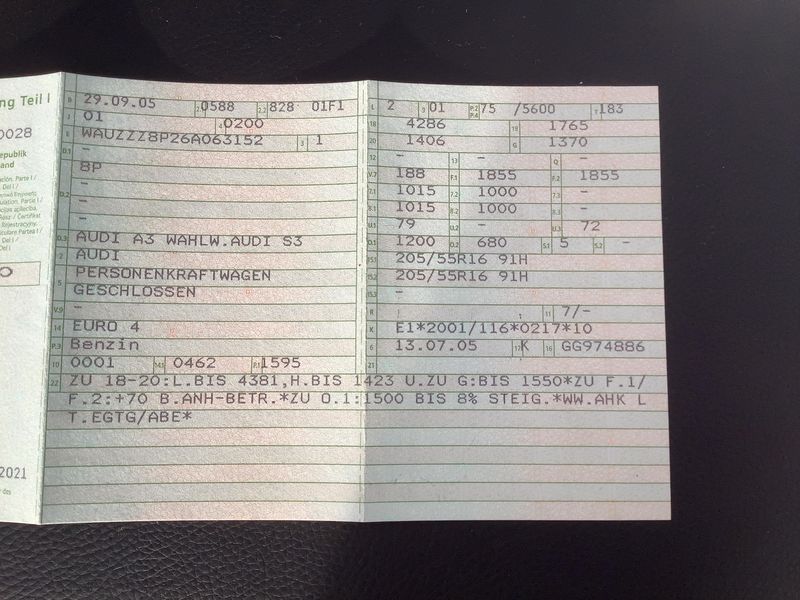 ng Teil I
0028
epublik
and
2021
B 29.09.05 2.1 0588 2.2 828 01F1
J 01 4 0200
E WAUZZZ8P26A063152 3 1
D.1 -
8P
D.2 -
-
D.3 AUDI A3 WAHLW.AUDI S3
2 AUDI
5 PERSONENKRAFTWAGEN
GESCHLOSSEN
V.9 -
14 EURO 4
P.3 Benzin
10 0001 14.1 0462 P.1 1595
22 ZU 18-20:L.BIS 4381,H.BIS 1423 U.ZU G:BIS 1550*ZU F.1/
F.2:+70 B.ANH-BETR.*ZU O.1:1500 BIS 8% STEIG.*WW.AHK L
T.EGTG/ABE*
L 2 9 01 P.2 P.4 75 /5600 T 183
18 4286 19 1765
20 1406 G 1370
12 - 13 - Q -
V.7 188 F.1 1855 F.2 1855
7.1 1015 7.2 1000 7.3 -
8.1 1015 8.2 1000 8.3 -
U.1 79 U.2 - U.3 72
O.1 1200 O.2 680 S.1 5 S.2 -
15.1 205/55R16 91H
15.2 205/55R16 91H
15.3 -
R 11 7/-
K E1*2001/116*0217*10
6 13.07.05 17 K 16 GG974886
21